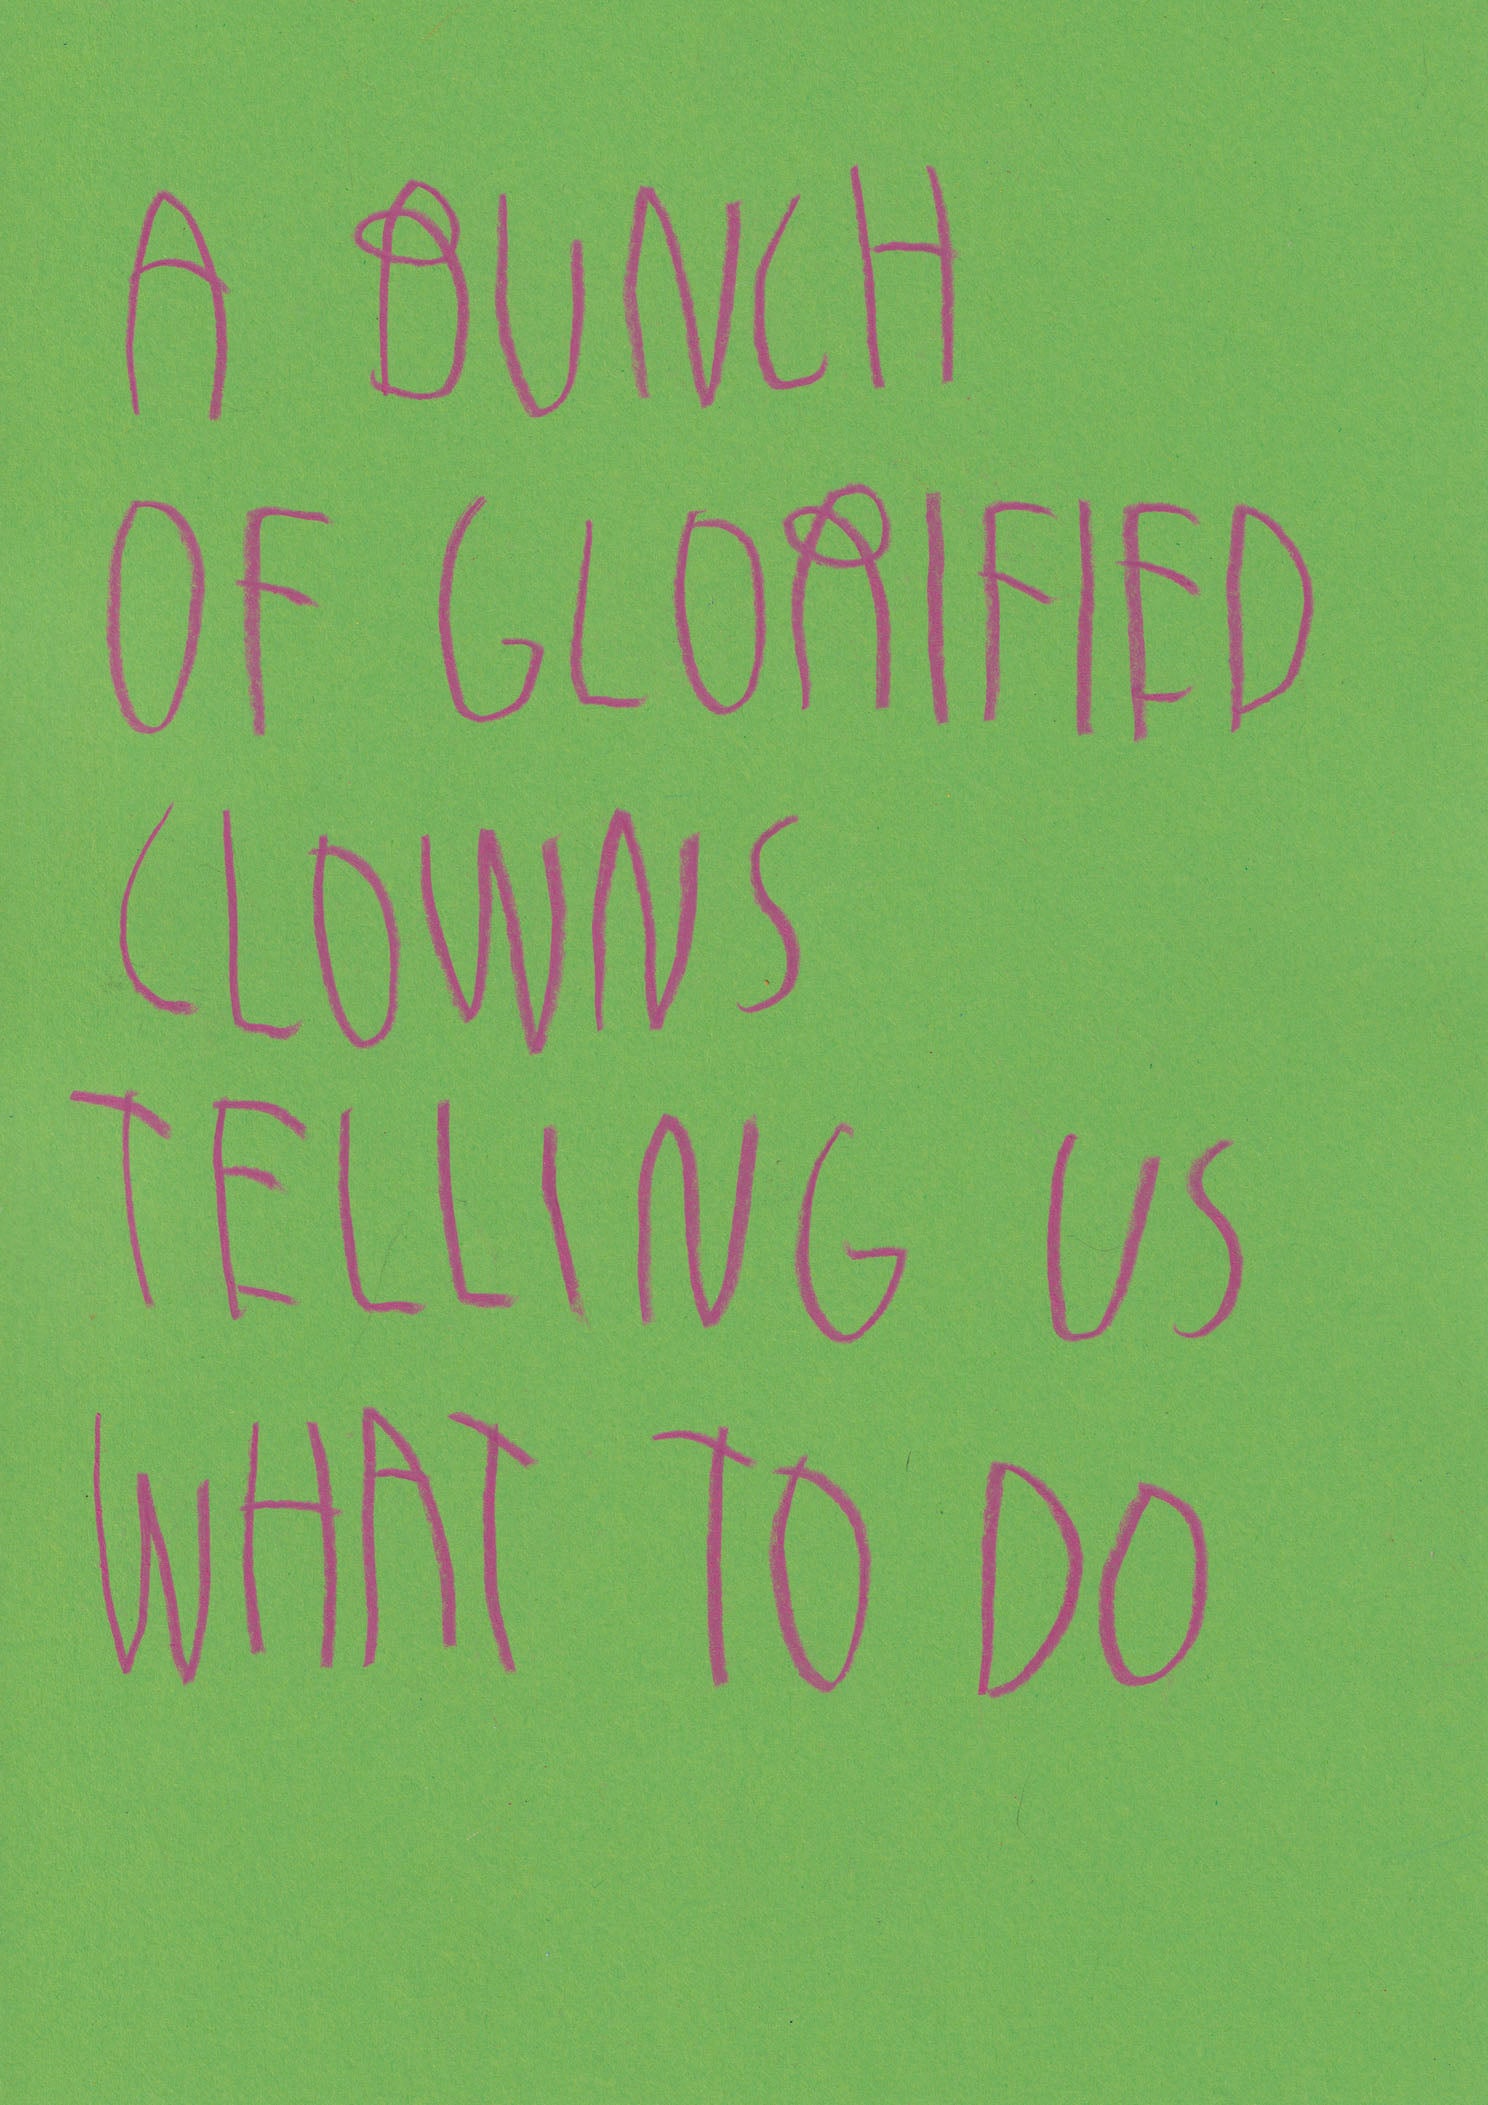 A BUNCH
OF GLORIFIED
CLOWNS
TELLING US
WHAT TO DO